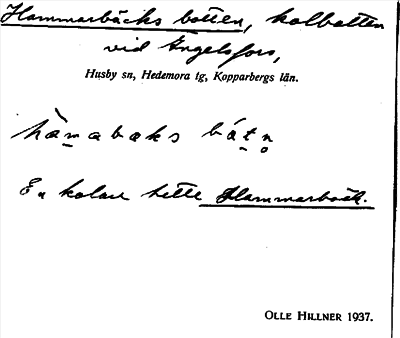 Hammarbäcks botten, kolbotten
vid Engelsfors,
Husby sn, Hedemora tg, Kopparbergs län.
hàmabaks bátn
En kolare hette Hammarbäck.
OLLE HILLNER 1937.